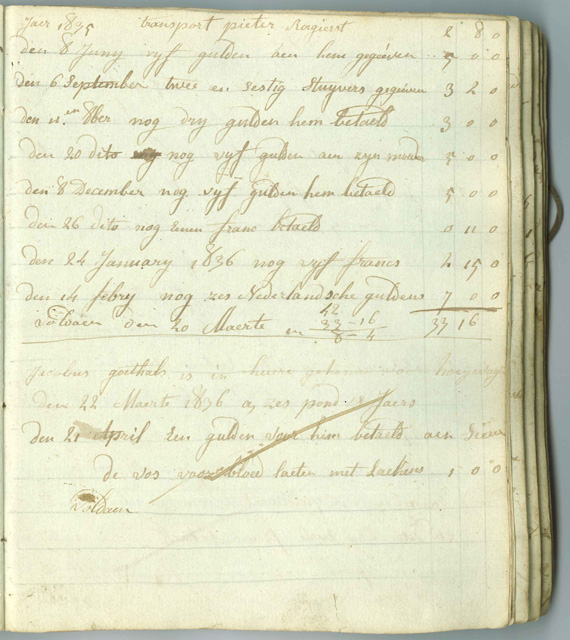 Jaer 1835 transport pieter Rogierst 2 8 0
den 8 Juny vyf gulden aen hem gegeeven 5 0 0
den 6 September twee en sestig Stuyvers gegeeven 3 2 0
den 11en 8ber nog dry gulden hem betaeld 3 0 0
den 20 dito nog vyf gulden aen zyn moeder 5 0 0
den 8 December nog vyf gulden hem betaeld 5 0 0
den 26 dito nog eenen franc betaeld 0 11 0
den 24 January 1836 nog vyf francs 2 15 0
den 14 febry nog zes Nederlandsche guldens 7 0 0
voldaen den 20 Maerte en 42
33 - 16
8 - 4 33 16
Jacobus goethals is in heure
den 22 Maerte 1836 a zes pond 's Jaers
den 21 April een gulden voor hem betaeld aen
de vos voor bloed laeten met 1 0 0
Voldaen